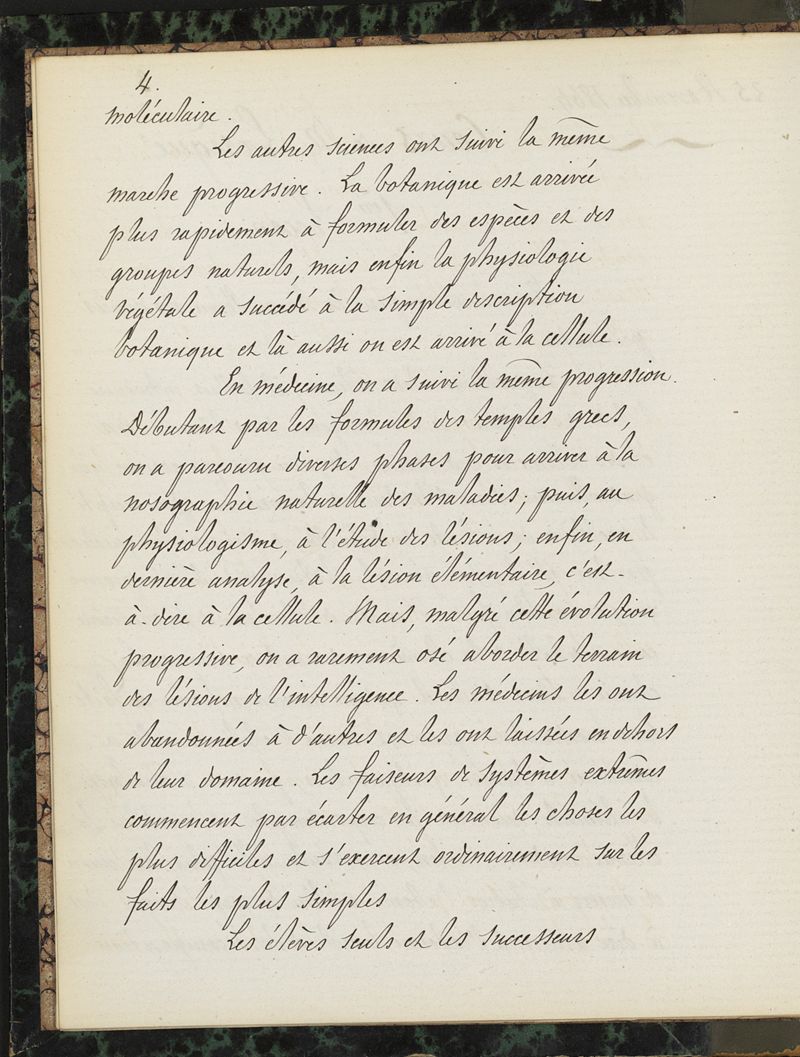 4.
moléculaire.
Les autres sciences ont suivi la même
marche progressive. La botanique est arrivée
plus rapidement à formuler des espèces et des
groupes naturels, mais enfin la physiologie
végétale a succédé à la simple description
botanique et là aussi on est arrivé à la cellule.
En médecine, on a suivi la même progression.
Débutant par les formules des temples grecs,
on a parcouru diverses phases pour arriver à la
nosographie naturelle des maladies; puis, au
physiologisme, à l'étude des lésions; enfin, en
dernière analyse, à la lésion élémentaire, c'est-
à-dire à la cellule. Mais, malgré cette évolution
progressive, on a rarement osé aborder le terrain
des lésions de l'intelligence. Les médecins les ont
abandonnées à d'autres et les ont laissées en dehors
de leur domaine. Les faiseurs de systèmes extrêmes
commencent par écarter en général les choses les
plus difficiles et s'exercent ordinairement sur les
faits les plus simples
Les élèves seuls et les successeurs